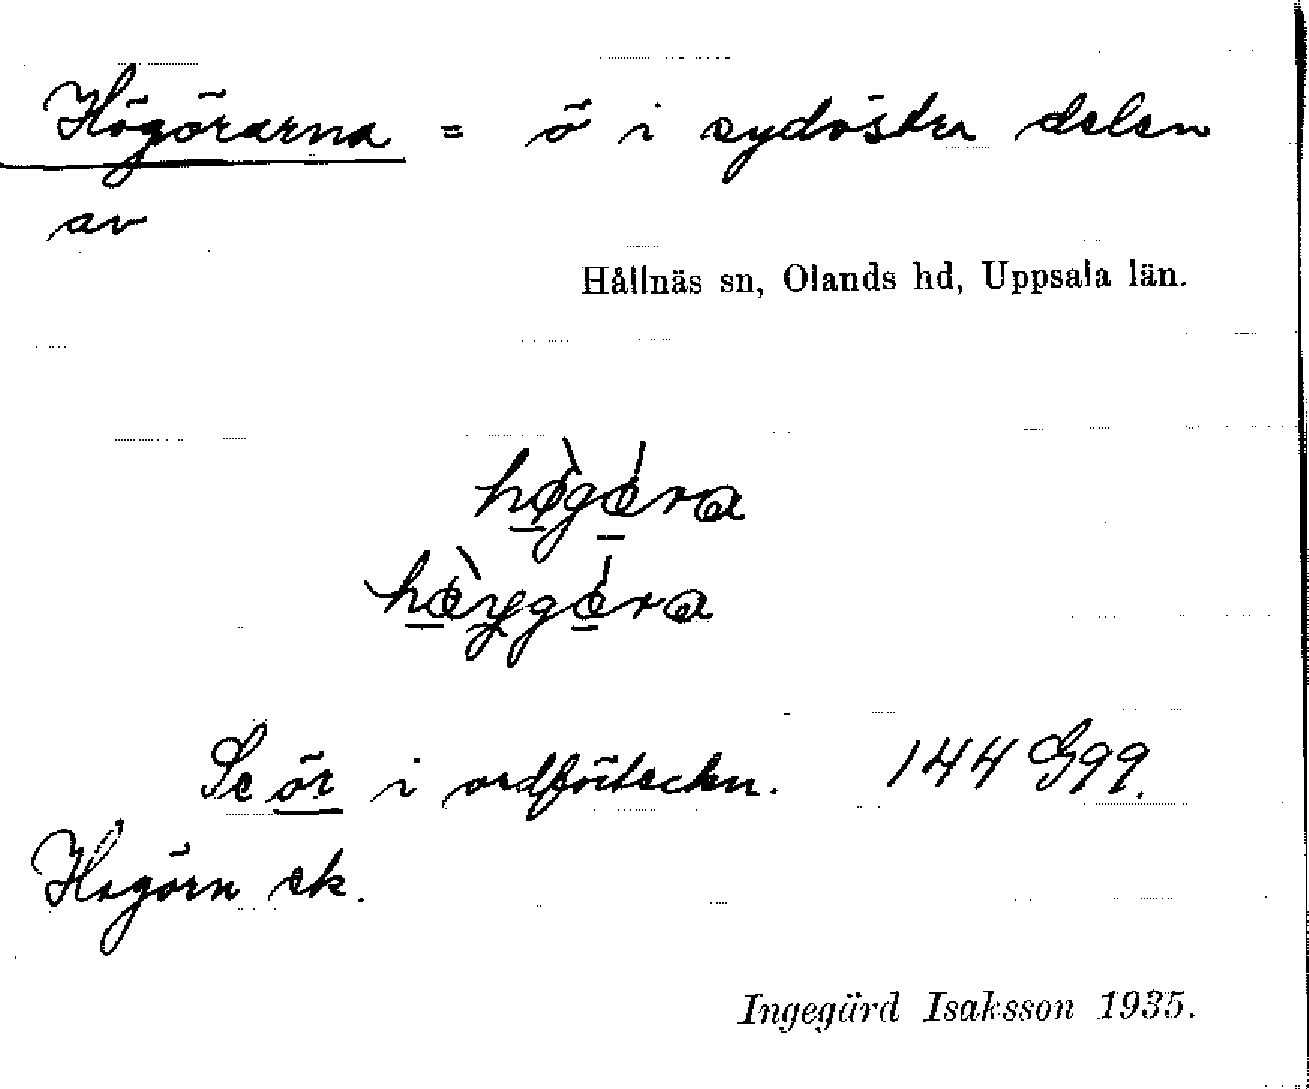 Högörarna = ö i sydöstra delen
av
Hållnäs sn, Olands hd, Uppsala län.
Se ör i ordförteckn. 144 G99.
Högörn ek.
Ingegärd Isaksson 1935.